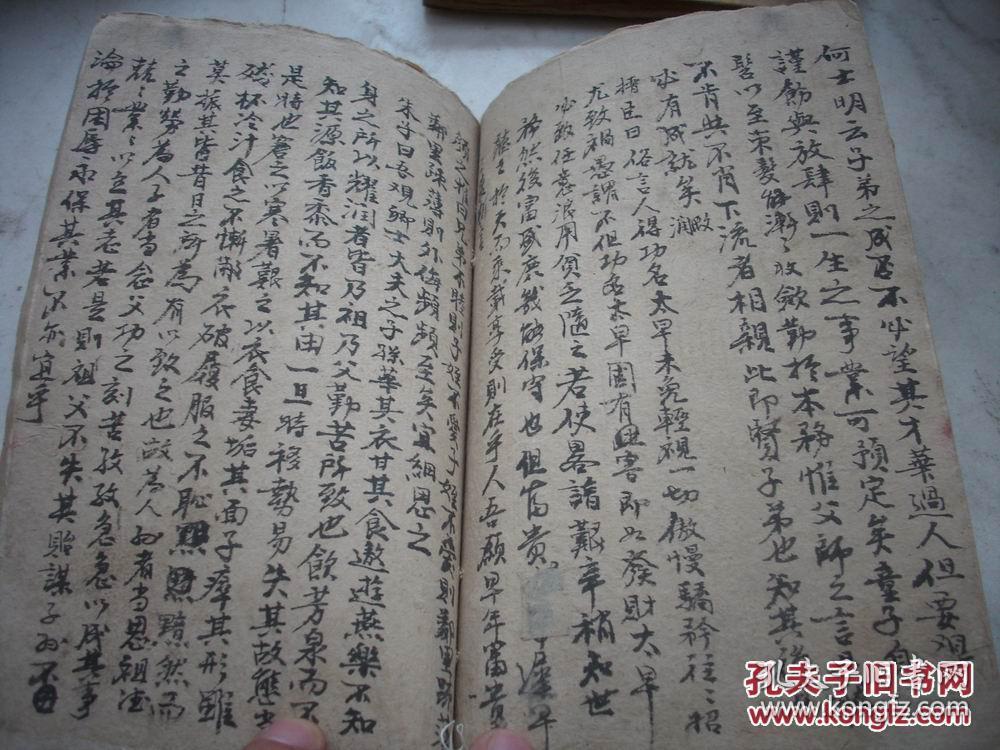 何士明云子弟之成否不必望其才華過人但要觀
謹飭與放肆則一生之事業可預定矣童子自
髫以至束髮能漸〻收斂勤於本務惟父師之言是
不肯與不肖下流者相親此即賢子弟也知其後
必有成就矣
搢臣曰俗言人得功名太早未免輕視一切傲慢驕矜往〻招
尤致禍愚謂不但功名太早固有興害即如發財太早
必致任意浪用貧乏隨之若使畧諳艱辛稍知世
務然後富盛庶幾能保守也但富貴
聽之於天而承載享受則在乎人吾願早年富貴
鄰里疎薄則外侮頻頻至矣宜細思之
朱子曰吾观卿士大夫之子孫華其衣甘其食遨遊燕樂不知
身之所以耀潤者皆乃祖乃父勤苦所致也飲芳泉而不
知其源飯香黍而不知其由一旦時移勢易失其故態
是時也窘之以寒暑艱之以衣食妻垢其面子瘁其形雖
殘杯冷汁食之不慚敝衣破履服之不恥黯然而
莫振其皆昔日之所為有以致之也故為人孙者當思祖德
之勤勞為人子者當念父功之刻苦孜急急以成其事
兢〻業〻以立其志若是則祖父不失其貽謀子孙不
淪於困辱永保其業不亦宜乎
孔夫子旧书网
www.kongfz.com
孔夫子旧书网
www.kongfz.com